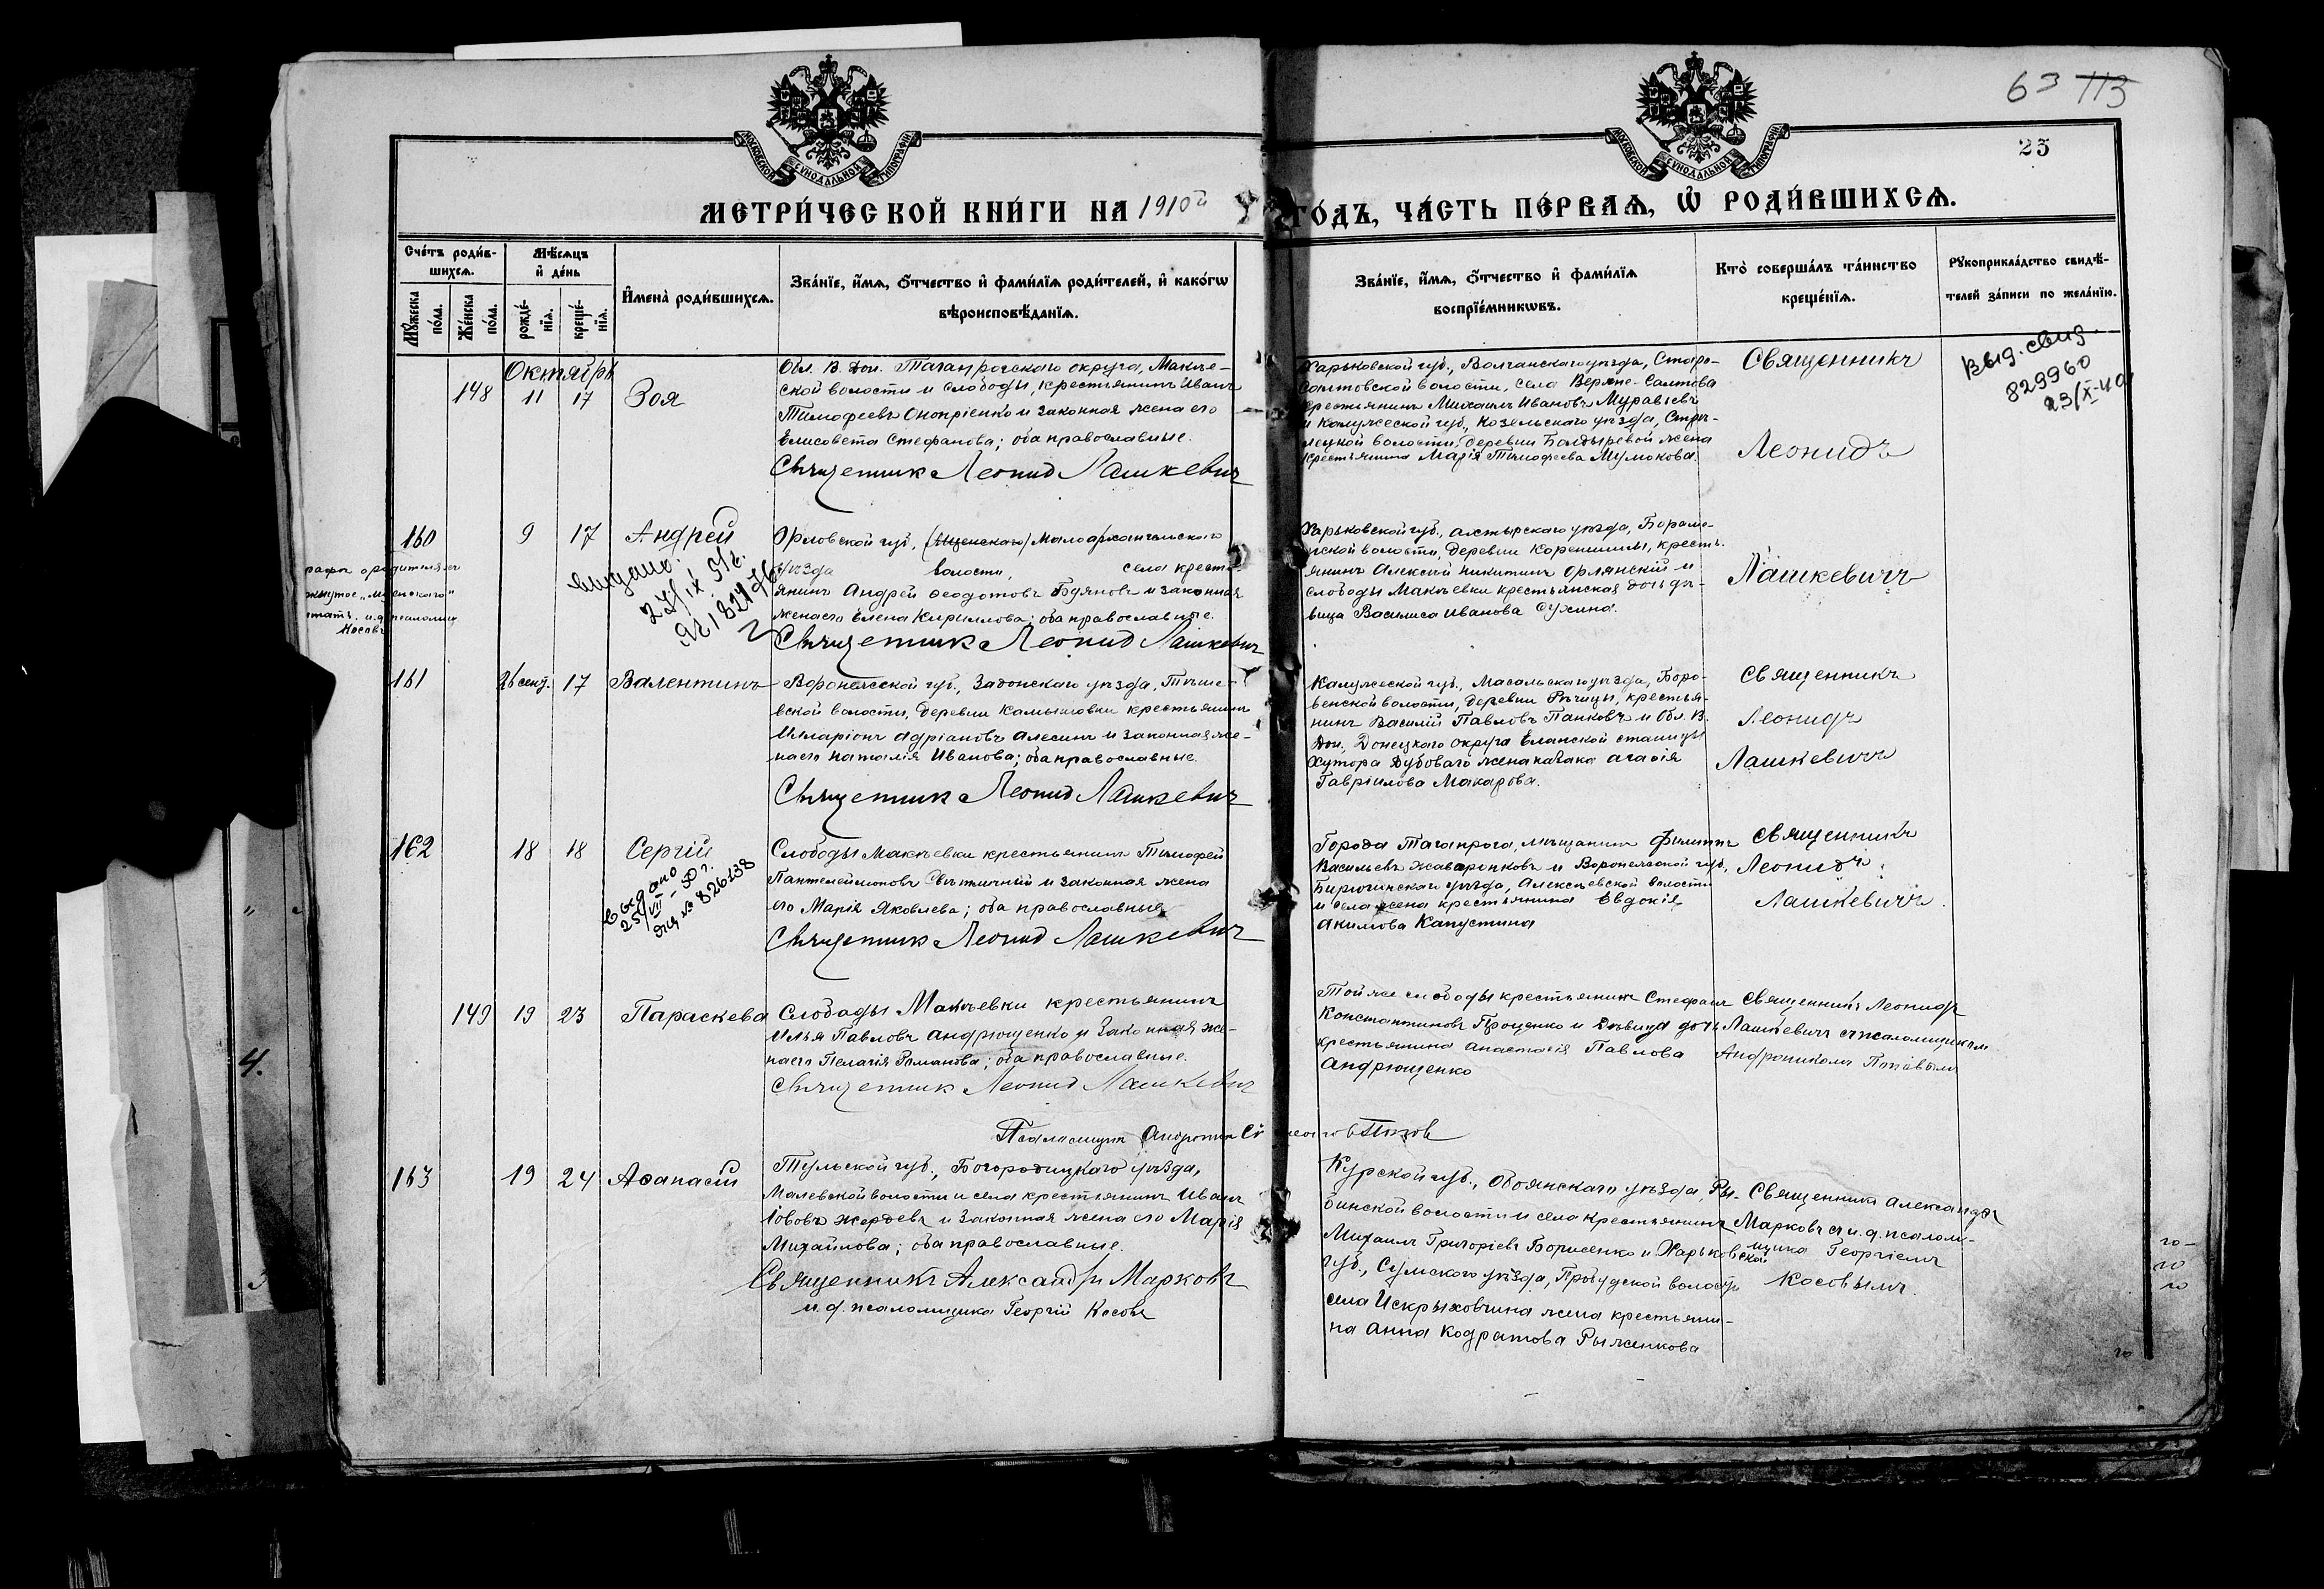 63 113
25
МОСКОВСКОЙ СУНОДАЛЬНОЙ ТИПОГРАФІИ
МОСКОВСКОЙ СУНОДАЛЬНОЙ ТИПОГРАФІИ
МЕТРИ́ЧЕСКОЙ КНИ́ГИ НА 1910й ГО́ДЪ, ЧА́СТЬ ПЕ́РВАѦ, Ѡ҆ РОДИ́ВШИХСѦ.
Сче́тъ роди́в-
шихсѧ.
Мꙋ́жеска по́ла.
Же́нска по́ла.
Мѣ́сѧцъ
и҆ де́нь
рожде́-
нїѧ.
креще́-
нїѧ.
И҆мена̀ роди́вшихсѧ.
Зва́нїе, и҆́мѧ, ѻ҆́тчество и҆ фами́лїѧ роди́телей, и҆ како́гѡ
вѣроисповѣ́данїѧ.
Зва́нїе, и҆́мѧ, ѻ҆́тчество и҆ фами́лїѧ
воспрїе́мникѡвъ.
Кто̀ соверша́лъ та́инство
креще́нїѧ.
Рꙋкоприкла́дство свидѣ́-
телей за́писи по жела́нїю.
Октябрь
148 11 17 Зоя
Обл. В. Дон. Таганрогскаго округа, Макѣе-
ской волости и слободы, крестьянинъ Иванъ
Тимофеевъ Оноприенко и законная жена его
Елисовета Стефанова; оба православные.
Священник Леонид Лашкевич
Харьковской губ., Волчанскаго уѣзда, Старо-
Салтовской волости, села Верхне-Салтова
крестьянинъ Михаилъ Ивановъ Муравьевъ
и Калужской губ., Козельскаго уѣзда,
волости, деревни Болдыревой жена
крестьянина Марія Тимофеева
Священникъ
Леонидъ
выд. свид.
829960
23/X-40
160 9 17 Андрей
выдано.
27/IX 51г.
Орловской губ., (Мценскаго) Малоархангельскаго
уѣзда волости, села кресть-
янинъ Андрей Ѳеодотовъ Буяновъ и законная
жена его Елена Кириллова; оба православные.
Священник Леонид Лашкевич
Харьковской губ., Ахтырскаго уѣзда,
волости, деревни крестъ-
янинъ Алексѣй Никитинъ Орлянский и
слободы Макѣевки крестьянская дочь дѣ-
вица Василиса Иванова Сухина.
Лашкевичъ
161 26 сент. 17 Валентинъ
Воронежской губ., Задонскаго уѣзда,
вской волости, деревни Камышовки крестьянинъ
Илларіонъ Адріановъ Алесинъ и законная же-
на его Наталія Иванова; оба православные.
Священник Леонид Лашкевич
Калужской губ., Масальскаго уѣзда,
волости, деревни Рѣчицы, крестья-
нинъ Василій Павловъ Панковъ и Обл. В.
Дон., Донецкаго округа Еланской станицы
хутора Дубоваго жена казака Агафія
Гавріилова Макарова.
Священникъ
Леонидъ
Лашкевичъ
162 18 18 Сергій
Выдано
25/VII-50 г.
№ 826138
Слободы Макѣевки крестьянинъ Тимофей
Пантелеймоновъ и законная жена
его Марія Яковлева; оба православные.
Священник Леонид Лашкевич
Города Таганрога, мѣщанинъ Филиппъ
Васильевъ Жаваронковъ и Воронежской губ.,
Бирюченскаго уѣзда, Алексѣевской волости
и села жена крестьянина Евдокія
Акимова Капустина
Священникъ
Леонидъ
Лашкевичъ.
149 19 23 Параскева
Слободы Макѣевки крестьянинъ
Илья Павловъ Андрющенко и законная же-
на его Пелагія Романова; оба православные.
Священник Леонид Лашкевич
Псаломщик Андроник Попов
Той же слободы крестьянинъ Стефанъ
Константиновъ Проценко и дѣвица дочь
крестьянина Анастасія Павлова
Андрющенко
Священникъ Леонидъ
Лашкевичъ съ псаломщикомъ
Андроникомъ
163 19 24 Аѳанасій
Тульской губ., Богородицкаго уѣзда,
Малевской волости и села крестьянинъ Иванъ
Іововъ Жердевъ и законная жена его Марія
Михайлова; оба православные.
Священникъ Александръ Марковъ
и. д. псаломщика Георгій Косовъ
Курской губ., Обоянскаго уѣзда, Ры-
бинской волости и села крестьянинъ
Михаилъ Григоріевъ Борисенко и Харьковской
губ., Сумскаго уѣзда, волости
села Искрысковщина жена крестьяни-
на Анна Кодратова Рыженкова
Священникъ Александръ
Марковъ съ и. д. псалом-
щика Георгіемъ
Косовымъ.